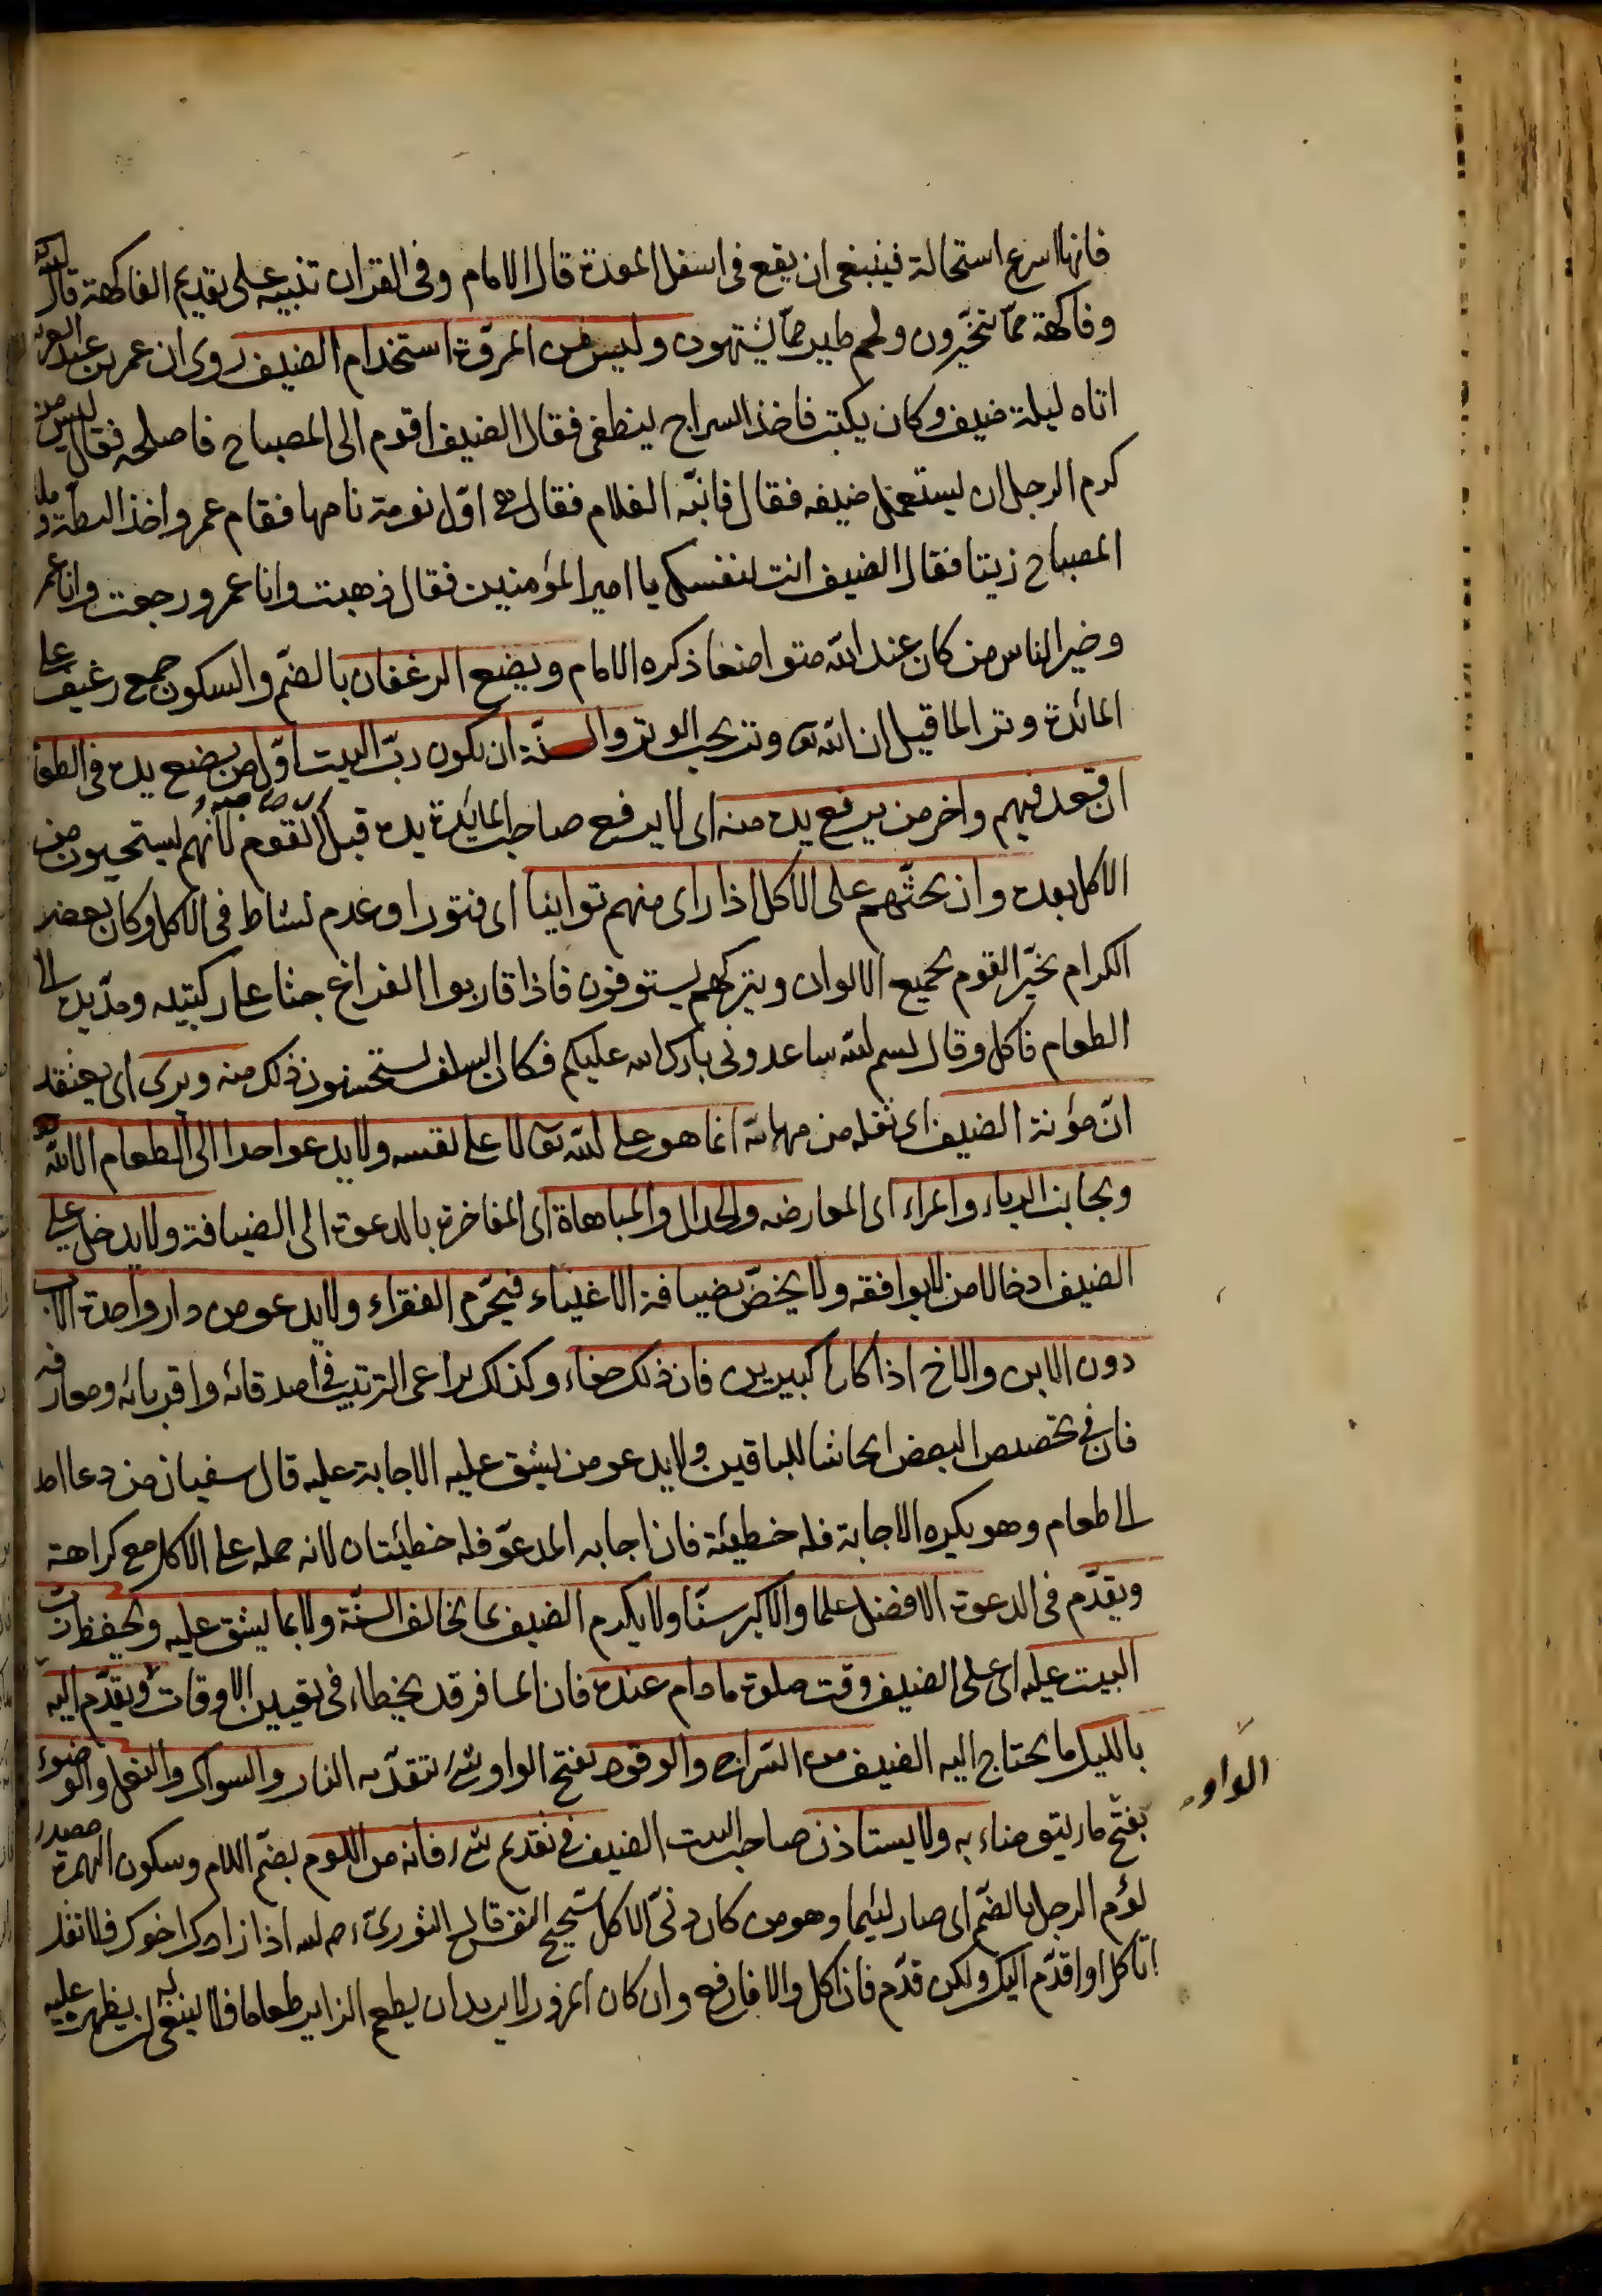 فانها اسرع استحالة فينبغى ان يقع فى اسفل المعدة قال الامام وفى القران تنبيه على تقديم الفاكهة قال الله
وفاكهة ممّا يتخيّرون ولحم طير ممّا يشتهون وليس من المروّة استخدام الضيف روى ان عمر بن عبد العزيز
اتاه ليلة ضيف وكان يكتب فاخذ السراج ينطفى فقال الضيف اقوم الى المصباح فاصلحه فقال ليس من
كرم الرجل ان يستعمل ضيفه فقال فانبّه الغلام فقال هى اوّل نومة نامها فقام عمر واخذ البطة وملأ
المصباح زيتا فقال الضيف انت لنفسك يا امير المؤمنين فقال ذهبت وانا عمر ورجعت وانا عمر
وخير الناس من كان عند الله متواضعا ذكره الامام ويضع الرغفان بالضمّ والسكون جمع رغيف على
المائدة وترا لما قيل ان الله تع وتر يحب الوتر والسنّة ان يكون ربّ البيت اوّل من يضع يده فى الطعام
ان قعد فيهم واخر من يرفع يده منه اى لا يرفع صاحب المايدة يده قبل القوم لانهم يستحيون من
الاكل بعده وان يحثّهم على الاكل اذا راى منهم توانيا اى فتورا وعدم نشاط فى الاكل وكان بعض
الكرام يخبّر القوم بجميع الالوان ويتركهم يستوفون فاذا قاربوا الفراغ جثا على ركبتيه ومدّ يده الى
الطعام فاكل وقال بسم الله ساعدونى بارك الله عليكم فكان السلف يستحسنون ذلك منه ويرى اى يعتقد
انّ مؤنة الضيف اى ثقله من مهماته انما هو على الله تعالى لا على نفسه ولا يدعو احدا الى الطعام الا لله
ويجانب الرياء والمراء اى المعارضه والجدال والمباهاة اى المفاخرة بالدعوة الى الضيافة ولا يدخل على
الضيف ادخالا من لا يوافقه ولا يخصّ بضيافة الاغنياء فيحرّم الفقراء ولا يدعو من دار واحدة الاب
دون الابن والاخ اذا كانا كبيرين فان ذلك جفاء وكذلك يراعى الترتيب فى اصدقائه واقربائه ومعارفه
فان فى تخصيص البعض ايحاشا للباقين ولا يدعو من يشق عليه الاجابة عليه قال سفيان من دعا احدا
الى طعام وهو يكره الاجابة فله خطيئة فان اجابه المدعوّ فله خطيئتان لانه حمله على الاكل مع كراهة
ويقدّم فى الدعوة الافضل علما والاكبر سنّا ولا يكرم الضيف بما يخالف السنّة ولا بما يشق عليه ويحفظ ربّ
البيت عليه اى على الضيف وقت صلوة ما دام عنده فان المسافر قد يخطاء فى تعيين الاوقات ويقدّم اليه
بالليل ما يحتاج اليه الضيف من السّراج والوقود بفتح الواو شئ تتقد به النار والسواك والنعل والوضوء
بفتح الواو ما يتوضاء به ولا يستاذن صاحب البيت الضيف فى تقديم شئ فانه من اللوم بضمّ اللام وسكون الهمزة مصدر
لؤم الرجل بالضّم اى صار لئيما وهو من كان دنىّ الاكل شحيح النفس قال الثورىّ رحمه الله اذا زارك اخوك فلا تقل
اتاكل او اقدّم اليك ولكن قدّم فان اكل والا فارفع وان كان المزور لا يريد ان يطعم الزاير طعاما فلا ينبغى له ان يظهره عليه